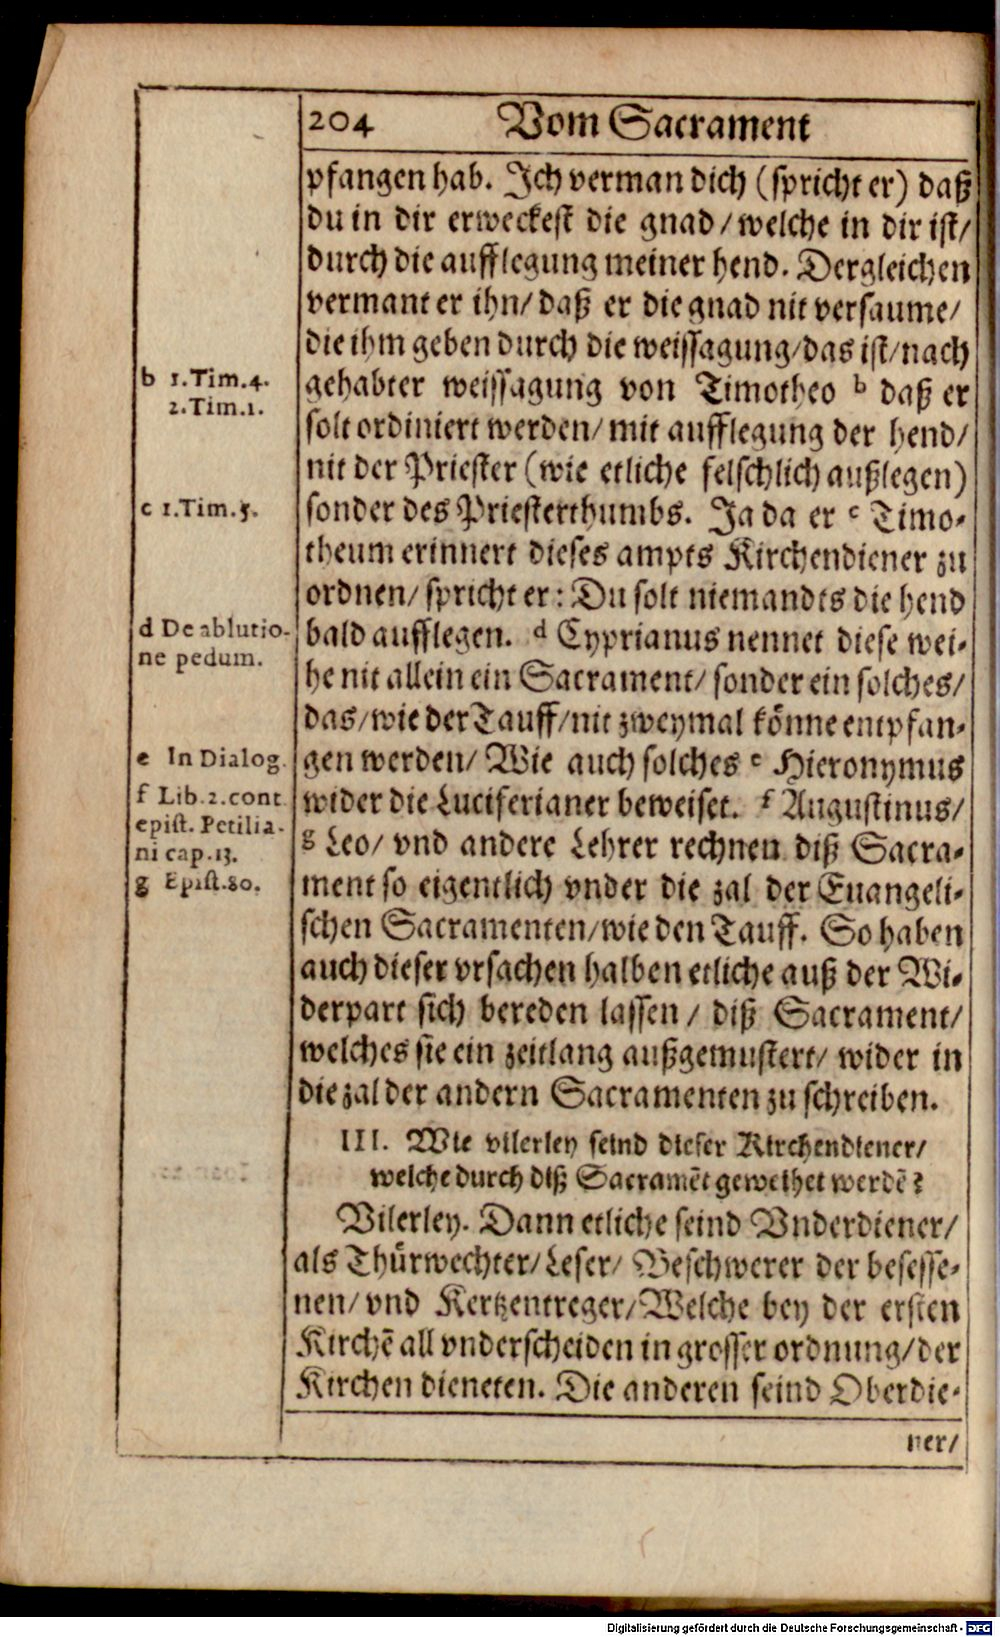 204 Vom Sacrament
pfangen hab. Ich verman dich (spricht er) daß
du in dir erweckest die gnad/ welche in dir ist/
durch die aufflegung meiner hend. Dergleichen
vermant er ihn/ daß er die gnad nit versaume/
die ihm geben durch die weissagung/ das ist/ nach
gehabter weissagung von Timotheo b daß er
solt ordiniert werden/ mit aufflegung der hend/
nit der Priester (wie etliche felschlich außlegen)
sonder des Priesterthumbs. Ja da er c Timo-
theum erinnert dieses ampts Kirchendiener zu
ordnen/ spricht er: Du solt niemandts die hend
bald aufflegen. d Cyprianus nennet diese wei-
he nit allein ein Sacrament/ sonder ein solches/
das/ wie der Tauff/ nit zweymal könne entpfan-
gen werden/ Wie auch solches e Hieronymus
wider die Luciferianer beweiset. f Augustinus/
g Leo/ vnd andere Lehrer rechnen diß Sacra-
ment so eigentlich vnder die zal der Euangeli-
schen Sacramenten/ wie den Tauff. So haben
auch dieser vrsachen halben etliche auß der Wi-
derpart sich bereden lassen/ diß Sacrament/
welches sie ein zeitlang außgemustert/ wider in
die zal der andern Sacramenten zu schreiben.
III. Wie vilerley seind dieser Kirchendiener/
welche durch diß Sacramēt geweihet werdē?
Vilerley. Dann etliche seind Vnderdiener/
als Thürwechter/ Leser/ Beschwerer der besesse-
nen/ vnd Kertzentreger/ Welche bey der ersten
Kirchē all vnderscheiden in grosser ordnung/ der
Kirchen dieneten. Die anderen seind Oberdie-
ner/
b 1.Tim.4.
2.Tim.1.
c 1.Tim.5.
d De ablutio-
ne pedum.
e In Dialog.
f Lib.2.cont
epist. Petilia-
ni cap.13.
g Epist.80.
Digitalisierung gefördert durch die Deutsche Forschungsgemeinschaft - DFG